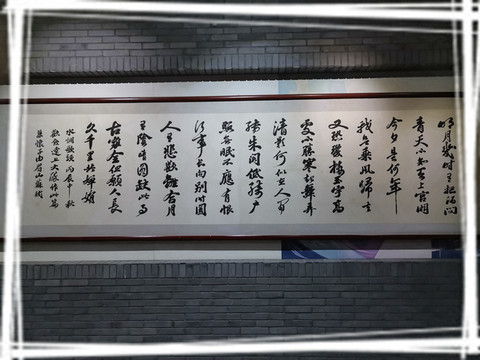 明月幾時有把酒問
青天不知天上宮闕
今夕是何年
我欲乘風歸去
又恐瓊樓玉宇高
處不勝寒起舞弄
清影何似在人間
轉朱閣低綺戶
照無眠不應有恨
何事長向別時圓
人有悲歡離合月
有陰晴圓缺此事
古難全但願人長
久千里共嬋娟
水調歌頭 丙辰中秋
歡飲達旦大醉作此篇
兼懷子由眉山蘇軾